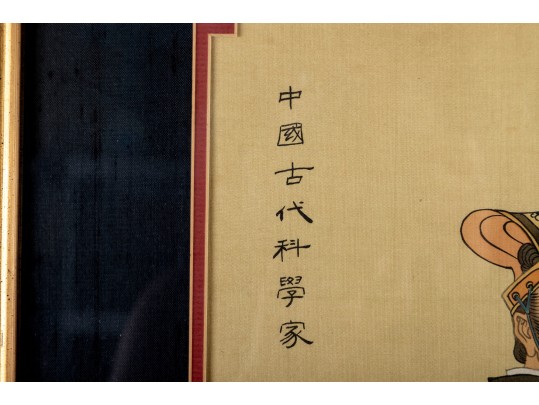 中國古代科學家